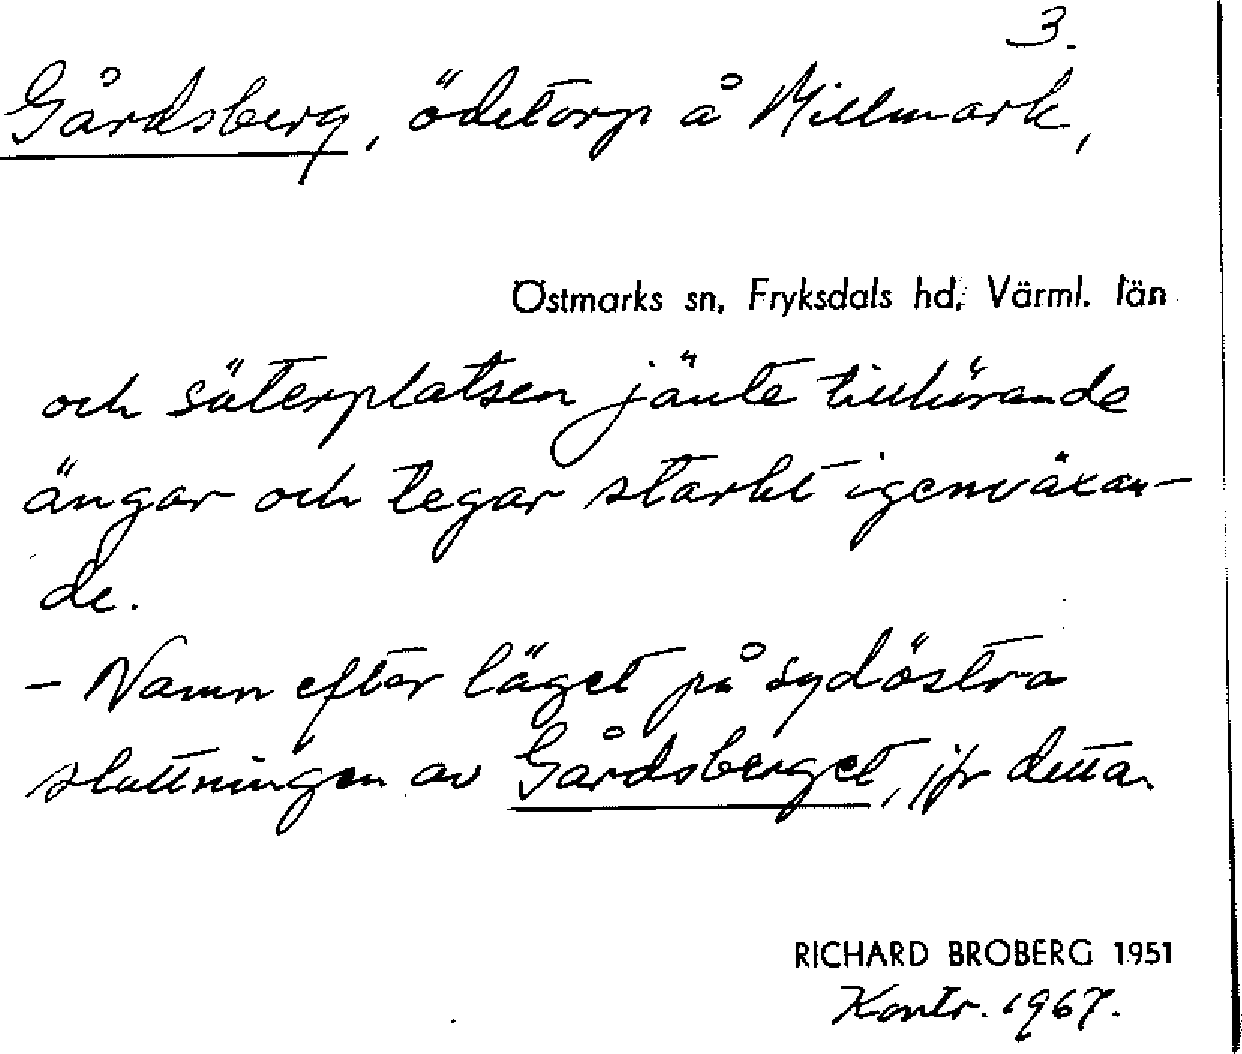 3.
Gårdsberg, ödetorp å Millmark,
Östmarks sn, Fryksdals hd, Värml. län
och säterplatsen jämte tillhörande
ängar och tegar starkt igenväxan-
de.
- Namn efter läget på sydöstra
sluttningen av Gårdsberget, jfr detta.
RICHARD BROBERG 1951
Kontr. 1967.